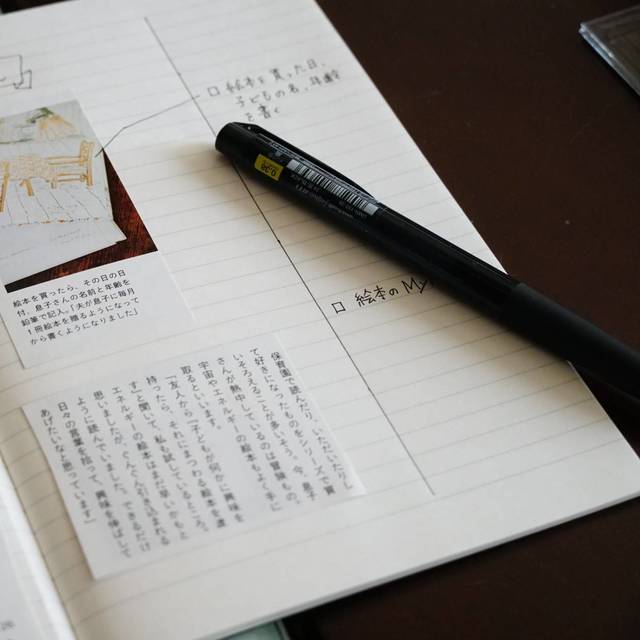 □ 絵本を買った日、
子どもの名、年齢
を書く
0.38
絵本を買ったら、その日の日
付、息子さんの名前と年齢を
鉛筆で記入。「夫が息子に毎月
1冊絵本を贈るようになって
から書くようになりました」
□ 絵本のMy
保育園で読んでいただいたり
て好きになったものをシリーズで買
いそろえることが多いよう。今、息子
さんが熱中しているのは冒険もの。
宇宙やエネルギーの絵本もよく手に
取るといいます。
「友人から『子どもが何かに興味を
持ったら、それにまつわる絵本を渡
すと聞いて、私も試しているところ。
エネルギーの絵本はまだ早いかもと
思いましたが、
ように読んでいました。できるだけ
日々の言葉を拾って、興味を伸ばして
あげたいなと思っています」